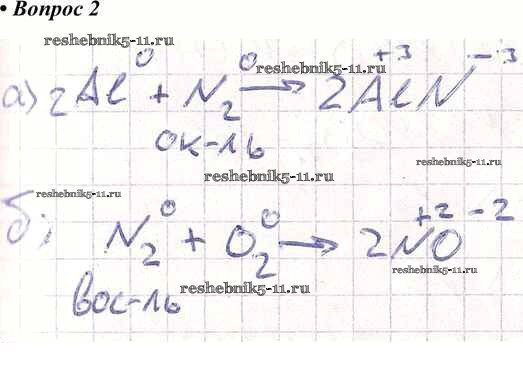 • Вопрос 2
reshebnik5-11.ru
а) 2Al⁰ + N₂⁰ → 2Al⁺³N⁻³
reshebnik5-11.ru
ок-ль
reshebnik5-11.ru
reshebnik5-11.ru
reshebnik5-11.ru
б) N₂⁰ + O₂⁰ → 2N⁺²O⁻²
reshebnik5-11.ru
вос-ль
reshebnik5-11.ru